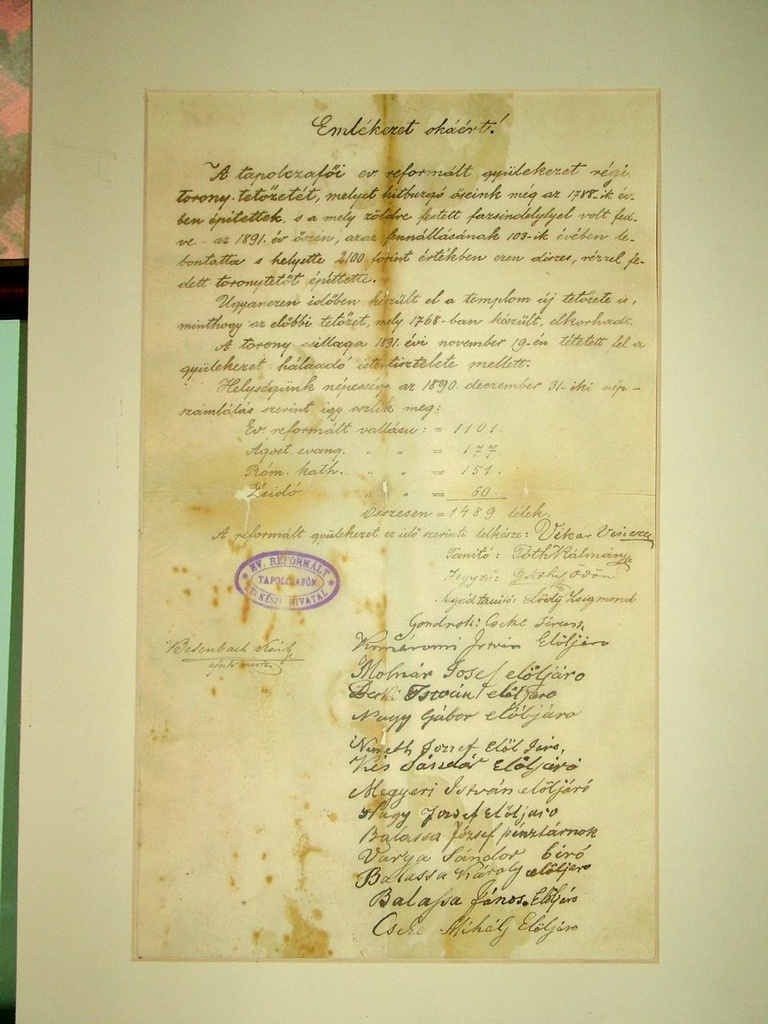 Emlékezet okáért!
A tapolczafői ev. reformált gyülekezet régi
torony-tetőzetét, melyet hitbuzgó őseink még az 1788-ik év-
ben építettek, s a mely zöldre festett fazsindelylyel volt fed-
ve - az 1891. év őszén, azaz fennállásának 103-ik évében le-
bontatta s helyette 2100 forint értékben ezen díszes, rézzel fe-
dett toronytetőt építtette.
Ugyanezen időben készült el a templom új tetőzete is,
minthogy az előbbi tetőzet, mely 1768-ban készült, elkorhadt.
A torony csillaga 1891. évi november 19-én tétetett fel a
gyülekezet hálaadó istentisztelete mellett.
Helységünk népessége az 1890. deczember 31-iki nép-
számlálás szerint így oszlik meg:
Ev. reformált vallású: = 1101.
Ágost. evang. " " = 177.
Róm. kath. " " = 151.
Zsidó " " = 60.
összesen = 1489 lélek.
A reformált gyülekezet ez idő szerinti lelkésze: Vikar Vincze
Tanító: Tóth Kálmán
Jegyző: Ödön
Segédtanító: Zsigmond
Gondnok: Cseke
EV. REFORMÁLT
TAPOLCZAFŐN
LELKÉSZI HIVATAL
Komáromi István Elöljáro
Molnár Josef elöljáro
Berki István elöljáro
Nagy Gábor elöbjáro
Németh Jozsef Elöl Járo,
Kis Sándór Elöljáró
Megyeri István elöljáró
Nagy Jozsef Elöljaro
Balassa József pénztárnok
Varga Sándor biró
Balassa Károly elöljaro
Balassa János. Elöljáró
Cseke Mihálj Elöljáro